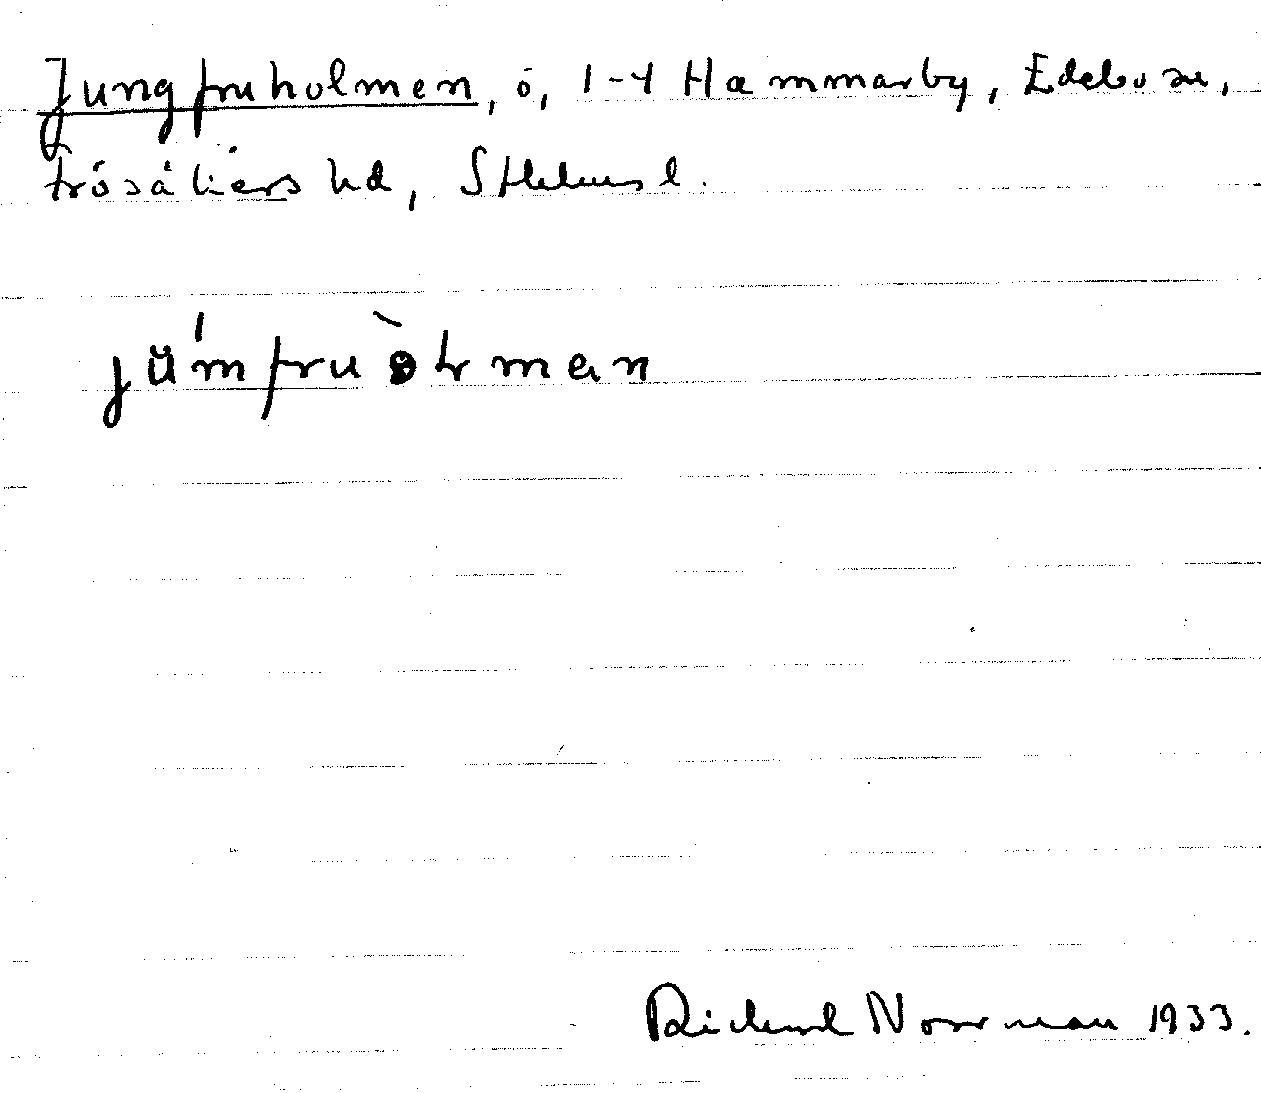 Jungfruholmen, ö, 1-4 Hammarby, Edebo sn,
Frösåkers hd, Sthlms l.
Rickard Norrman 1933.